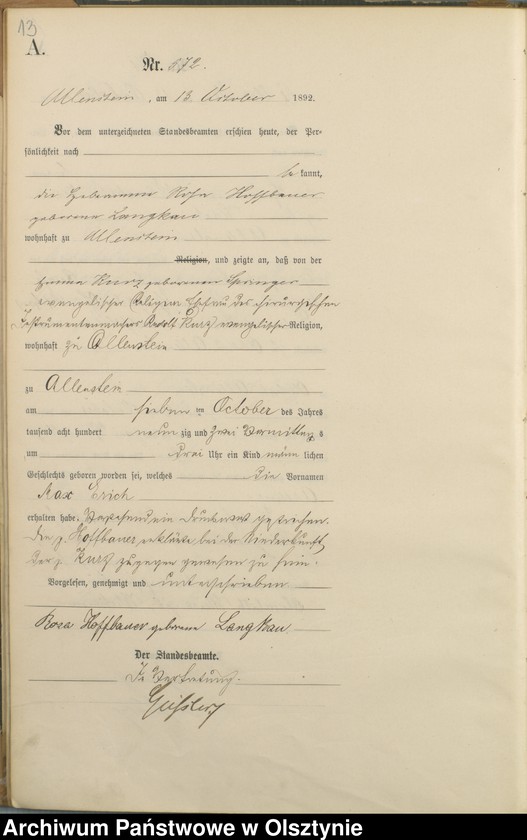 13
A.
Nr. 572.
Allenstein, am 13. October 1892.
Vor dem unterzeichneten Standesbeamten erschien heute, der Per-
sönlichkeit nach
be kannt,
die Hebamme Rosa Hoffbauer
geborene Langkau
wohnhaft zu Allenstein
Religion, und zeigte an, daß von der
Emma Kurz geborenen Springer
evangelischer Religion Ehefrau des chirurgischen
Instrumentenmachers Rudolf Kurz evangelischer Religion,
wohnhaft zu Allenstein
zu Allenstein
am sieben ten October des Jahres
tausend acht hundert neun zig und zwei Vormittag s
um drei Uhr ein Kind männ lichen
Geschlechts geboren worden sei, welches die Vornamen
Max Erich
erhalten habe. Vorstehend ein Druckwort gestrichen.
Die p. Hoffbauer erklärte bei der Niederkunft
der p. Kurz zugegen gewesen zu sein.
Vorgelesen, genehmigt und unterschrieben
Rosa Hoffbauer geborene Langkau
Der Standesbeamte.
In Vertretung.
Archiwum Państwowe w Olsztynie